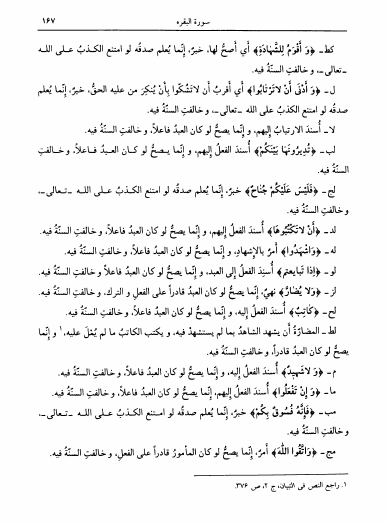 سورة البقره ١٦٧
كط ـ ﴿وَ أَقْوَمُ لِلشَّهَادَةِ﴾ أي أصحُّ لها، خبرٌ، إنّما يُعلم صدقُه لو امتنع الكذبُ عـلى اللـه
ـ تعالى ـ، و خالفتِ السنّةُ فيه.
ل ـ ﴿وَ أَدْنَىٰ أَنْ لاَتَرْتَابُوا﴾ أي أقربُ أن لاتَشُكّوا بأن يُنكِرَ من عليه الحقُّ، خبرٌ، إنّما يُعلم
صدقُه لو امتنع الكذبُ على الله ـ تعالى ـ، و خالفتِ السنّةُ فيه.
لا ـ أُسندَ الارتيابُ إليهم، و إنّما يصحُّ لو كان العبدُ فاعلاً، و خالفتِ السنّةُ فيه.
لب ـ ﴿تُدِيرُونَهَا بَيْنَكُمْ﴾ أُسندَ الفعلُ إليهم، و إنّما يـصحُّ لو كـان العـبدُ فـاعلاً، و خـالفتِ
السنّةُ فيه.
لج ـ ﴿فَلَيْسَ عَلَيْكُمْ جُنَاحٌ﴾ خبرٌ، إنّما يُعلم صدقُه لو امتنع الكذبُ عـلى اللـه ـ تـعالى ـ،
و خالفتِ السنّةُ فيه.
لد ـ ﴿أَنْ لاَتَكْتُبُوهَا﴾ أُسندَ الفعلُ إليهم، و إنّما يصحُّ لو كان العبدُ فاعلاً، و خالفتِ السنّةُ فيه.
له ـ ﴿وَاشْهِدُوا﴾ أمرٌ بالإشهادِ، و إنّما يصحُّ لو كان العبدُ فاعلاً، و خالفتِ السنّةُ فيه.
لو ـ ﴿إِذَا تَبَايَعتم﴾ أُسندَ الفعلُ إلى العبد، و إنّما يصحُّ لو كان العبدُ فاعلاً و خالفتِ السنّةُ فيه.
لز ـ ﴿وَلا يُضَارَّ﴾ نهيٌ، إنّما يصحُّ لو كان العبدُ قادراً على الفعلِ و الترك، و خالفتِ السنّةُ فيه.
لح ـ ﴿كَاتِبٌ﴾ أُسندَ الفعلُ إليه، و إنّما يصحُّ لو كان العبدُ قادراً، و خالفتِ السنّةُ فيه.
لط ـ المضارّةُ أن يشهد الشاهدُ بما لم يستشهد فيه، و يكتب الكاتبُ ما لم يُمْلَ عليه،١ و إنّما
يصحُّ لو كان العبدُ قادراً، و خالفتِ السنّةُ فيه.
م ـ ﴿وَ لاَشَهِيدٌ﴾ أُسندَ الفعلُ إليه، و إنّما يصحُّ لو كان العبدُ فاعلاً، و خالفتِ السنّةُ فيه.
ما ـ ﴿وَ إِنْ تَفْعَلُوا﴾ أُسندَ الفعلُ إليهم، و إنّما يصحُّ لو كان العبدُ فاعلاً، و خالفتِ السنّةُ فيه.
مب ـ ﴿فَإِنَّهُ فُسُوقٌ بِكُمْ﴾ خبرٌ، إنّما يُعلم صدقُه لو امتنع الكذبُ عـلى اللـه ـ تـعالى ـ،
و خالفتِ السنّةُ فيه.
مج ـ ﴿وَاتَّقُوا اللَّهَ﴾ أمرٌ، إنّما يصحُّ لو كان المأمورُ قادراً على الفعلِ، و خالفتِ السنّةُ فيه.
١. راجع النص في التبيان، ج ٢، ص ٣٧٦.